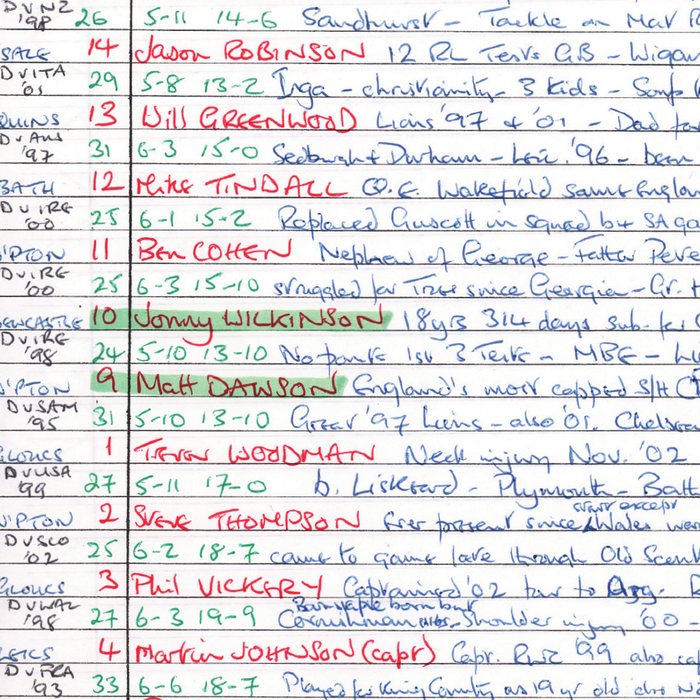 DVNZ '98 26 5-11 14-6 Sandhurst - Tackle on Mat
SALE 14 Jason ROBINSON 12 RL Tests GB - Wigan
DVITA '01 29 5-8 13-2 Inga - christianity - 3 kids - Soup
QUINS 13 Will GREENWOOD Lions '97 & '01 - Dad
DVAUS '97 31 6-3 15-0 Sedburgh & Durham - Leic. '96 - been
BATH 12 Mike TINDALL Q.E. Wakefield same
DVIRE '00 25 6-1 15-2 Replaced Guscott in squad b4 SA
N'PTON 11 Ben COHEN Nephew of George - Father Peter
DVIRE '00 25 6-3 15-10 struggled for Tries since Georgia - Gr.
NEWCASTLE 10 Jonny WILKINSON 18yrs 314 days sub. for
DVIRE '98 24 5-10 13-10 No points 1st 3 Tests - MBE -
N'PTON 9 Matt DAWSON England's most capped S/H
DVSAM '95 31 5-10 13-10 Great '97 Lions - also '01. Chelsea
GLOUCS 1 Trevor WOODMAN Neck injury Nov. '02
DVUSA '99 27 5-11 17-0 b. Liskeard - Plymouth -
N'PTON 2 Steve THOMPSON Ever present since start except Wales
DVSCO '02 25 6-2 18-7 came to game late through Old
GLOUCS 3 Phil VICKERY Captained '02 tour to Arg.
DVWAL '98 27 6-3 19-9 Barnstaple born but Cornishman - Shoulder injury '00 -
LEICS 4 Martin JOHNSON (capt) Capt. RWC '99 also
DVFRA '93 33 6-6 18-7 Played for King Country as 19 yr old also